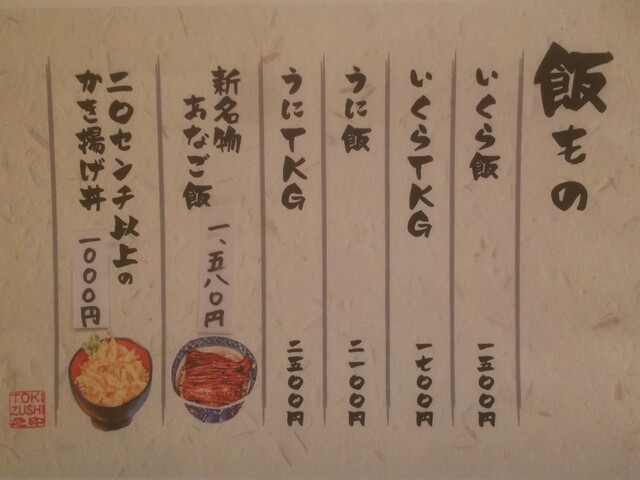 飯もの
いくら飯
一五〇〇円
いくらTKG
一七〇〇円
うに飯
二一〇〇円
うにTKG
二五〇〇円
新名物
あなご飯
一、五八〇円
二〇センチ以上の
かき揚げ丼
一〇〇〇円
TOKI
ZUSHI